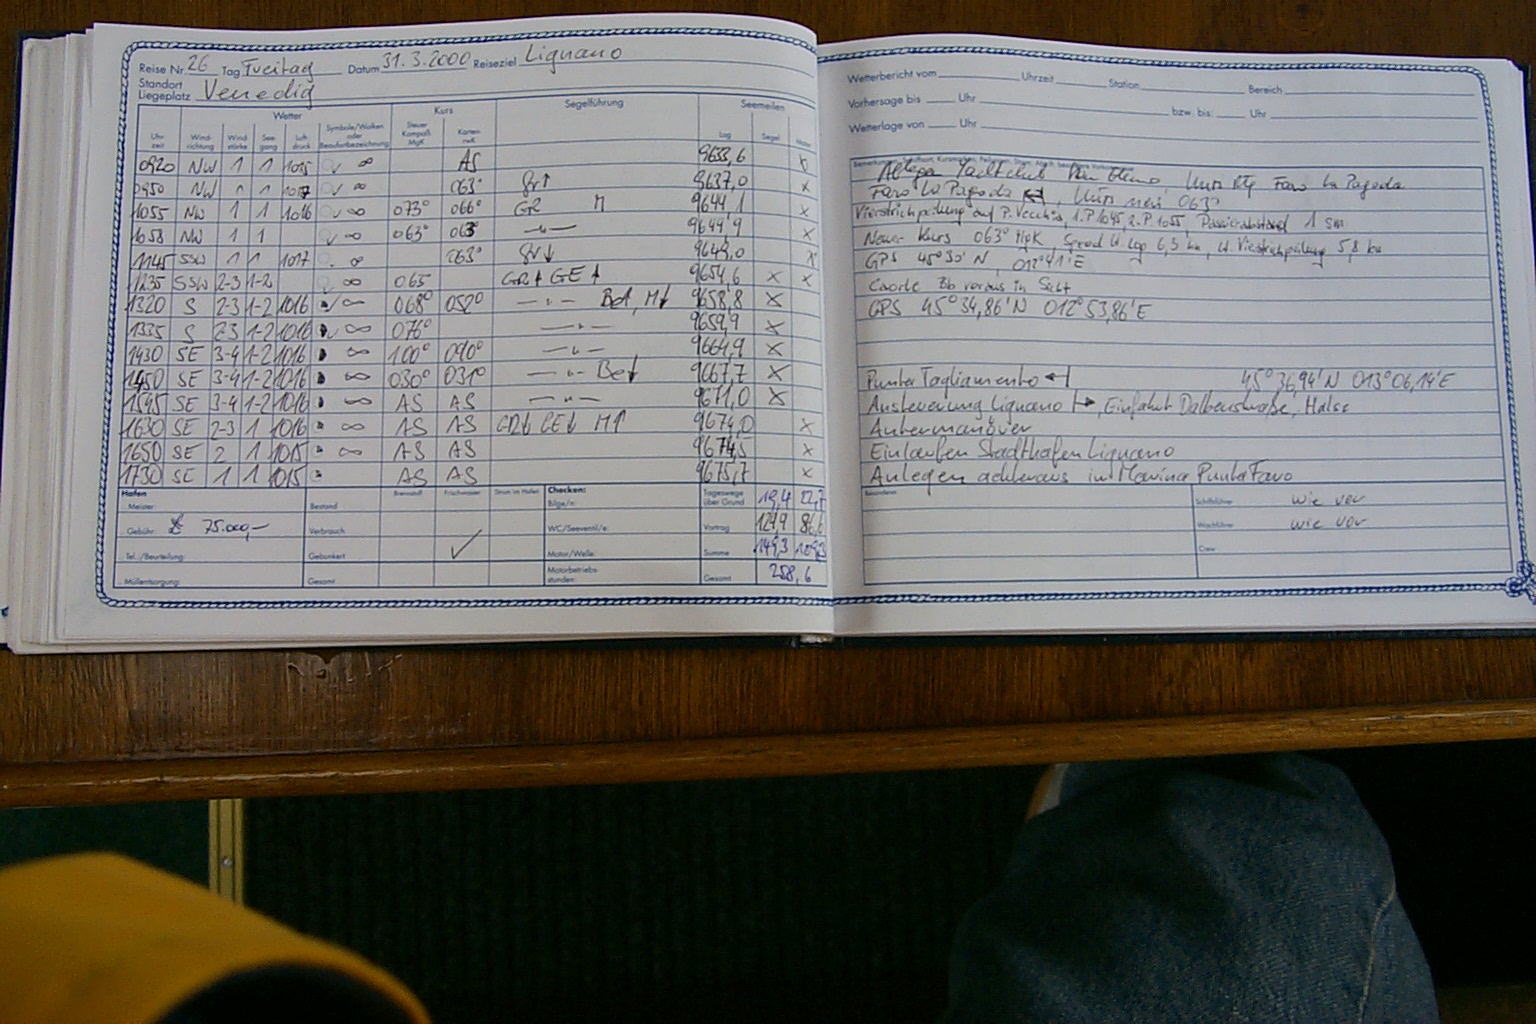 Reise Nr. 26 Tag Freitag Datum 31.3.2000 Reiseziel Lignano
Standort
Liegeplatz Venedig
Wetter Kurs Segelführung Seemeilen
Uhrzeit Windrichtung Windstärke Seegang Luftdruck Symbole/Wolken oder Beaufortbezeichnung Steuer Kompaß MgK Karten rwK Log Segel Motor
0920 NW 1 1 1015 ∞ AS 9633,6 x
0950 NW 1 1 1017 ∞ 063° Gr↑ 9637,0 x
1055 NW 1 1 1016 ∞ 073° 066° GR 9644,1 x
1058 NW 1 1 ∞ 063° 063° —"— 9644,9 x
1145 SSW 1 1 1017 ∞ 063° Gr↓ 9649,0 x
1235 SSW 2-3 1-2 065 GR↑ GE↑ 9654,6 x x
1320 S 2-3 1-2 1016 ∞ 068° 052° —"— M↓ 9658,8 x
1335 S 2-3 1-2 1016 ∞ 076° —"— 9659,9 x
1430 SE 3-4 1-2 1016 ∞ 100° 090° —"— 9664,9 x
1450 SE 3-4 1-2 1016 ∞ 030° 031° —"— Be↓ 9667,7 x
1545 SE 3-4 1-2 1016 ∞ AS AS —"— 9671,0 x
1630 SE 2-3 1 1016 ∞ AS AS GR↓ GE↓ M↑ 9674,0 x
1650 SE 2 1 1015 ∞ AS AS 9674,5 x
1730 SE 1 1 1015 AS AS 9675,7 x
Hafen Brennstoff Frischwasser Strom im Hafen Checken: Tageswege über Grund 19,4 22,7
Meister: Bestand Bilge/n:
Gebühr: £ 75.000,- Verbrauch WC/Seeventil/e: Vortrag 129,9 86,6
Tel./Beurteilung: Gebunkert ✓ Motor/Welle: Summe 149,3 109,3
Müllentsorgung: Gesamt Motorbetriebsstunden: Gesamt 258,6
Wetterbericht vom Uhrzeit Station Bereich
Vorhersage bis Uhr bzw. bis: Uhr
Wetterlage von Uhr
Ablegen Yachtclub Faro La Pagoda
Faro La Pagoda, Kurs neu 063°
Vierstrichpeilung auf P. Vecchia, 1.P 1045, 2.P. 1055, Passierabstand 1 sm
Neuer Kurs 063° MgK, Speed lt. Log 6,3 kn, lt. Vierstrichpeilung 5,8 kn
GPS 45°30'N, 012°41'E
Caorle Bb voraus in Sicht
GPS 45°34,86'N 012°53,86'E
Punta Tagliamento 45°36,94'N 013°06,14'E
Ansteuerung Lignano, Einfahrt Dalbenstraße,
Ankermanöver
Einlaufen Stadthafen Lignano
Anlegen achteraus in Marina Punta Faro
Besonderes Schiffsführer wie vor
Wachführer wie vor
Crew